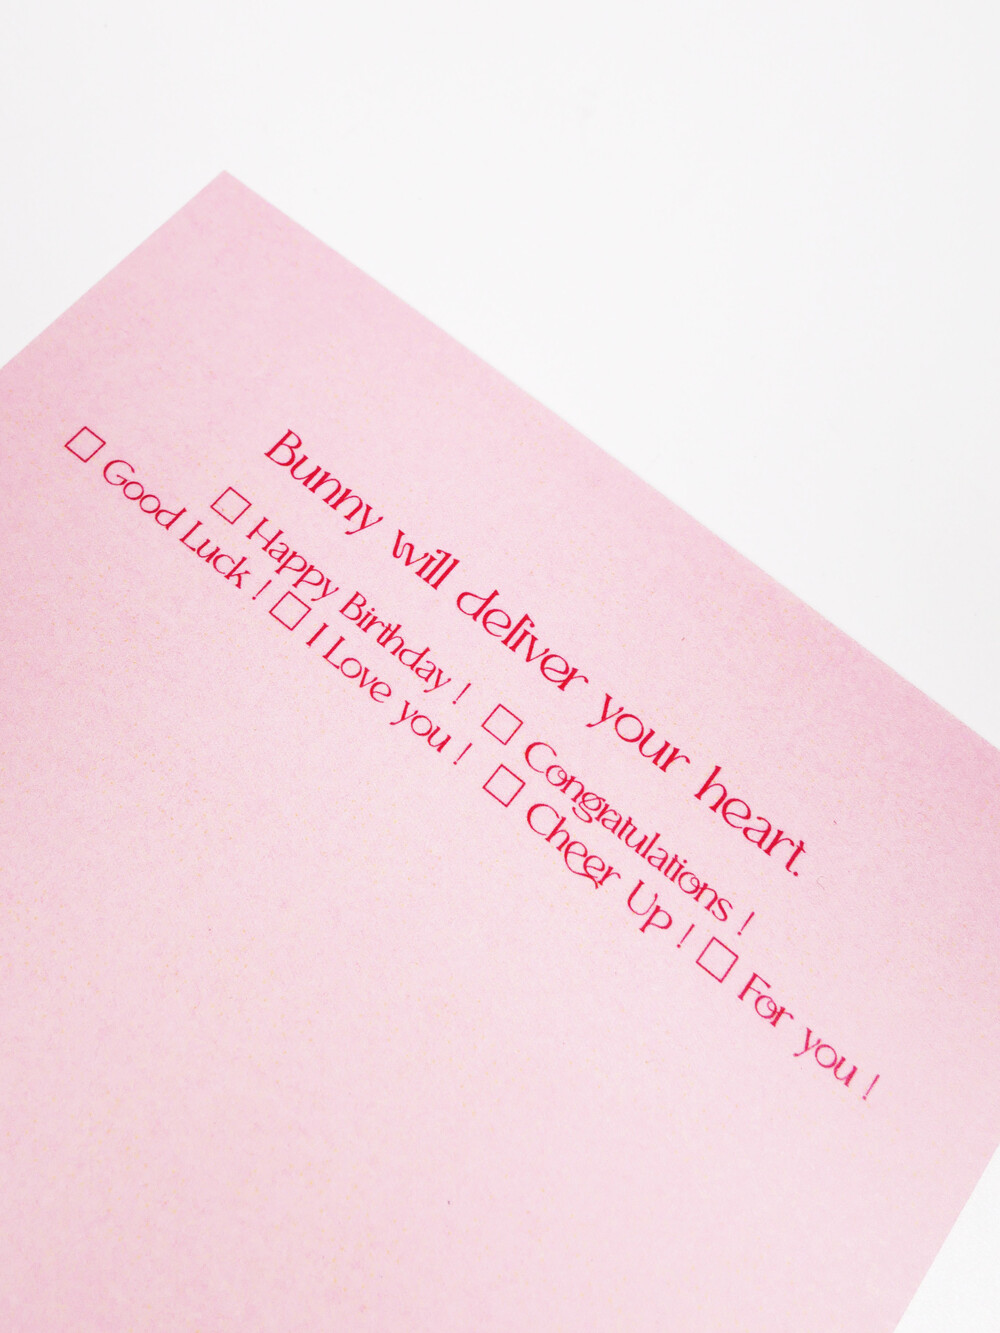 Bunny will deliver your heart.
☐ Happy Birthday ! ☐ Congratulations !
☐ Good Luck ! ☐ I Love you ! ☐ Cheer Up ! ☐ For you !